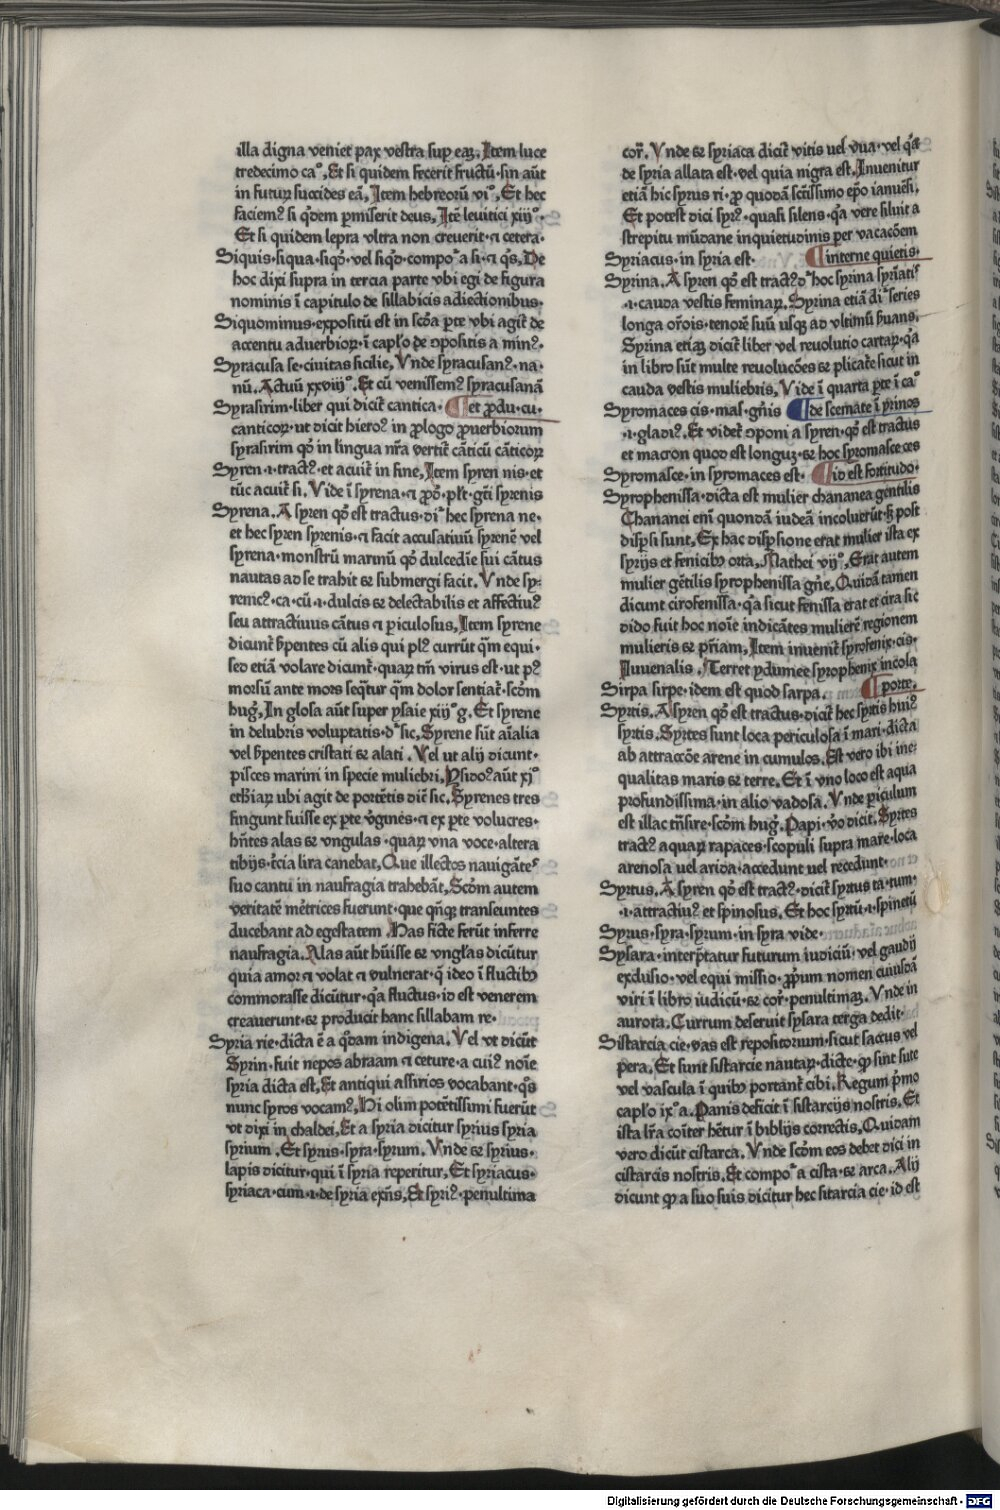 illa digna veniet pax vestra suꝑ eaꝫ. Item luce
tredecimo caº, Et si quidem fecerit fructū·sin aūt
in futuꝝ succides eā, Item hebreorū viº, Et hec
faciemꝰ si qͥdem ꝑmiserit deus, Itē levitici xiijº·
Et si quidem lepra vltra non creuerit·⁊ cetera·
Siquis·siqua·siqͦꝺ·vel siqͥꝺ·compoᵃ a si·⁊ qͥs, De
hoc dixi supra in tercia parte vbi egi de figura
nominis ī capitulo de sillabicis adiectionibus·
Siquominus·expositū est in scꝺa ꝑte vbi agit̄ de
accentu aduerbioꝝ·ī caplo de ꝯpositis a minꝰ·
Syracusa se·ciuitas sicilie, Vnde syracusanꝰ·na·
nū. Actuū xxviijº. Et cū venissemꝰ syracusanā
Syrasirim·liber qui dicit̄ cantica· ¶et ꝓdu·cu·
canticoꝝ·ut dicit hieroꝰ in ꝓlogo ꝓuerbiorum
syrasirim qꝺ in lingua nr̄a vertit̄ cāticū cāticoꝝ
Syren·i·tractꝰ·et acuit̄ in fine, Item syren nis·et
tūc acuit̄ si. Vide ī syrena·⁊ ꝓdꝰ·pꝉt·gtī syrenis
Syrena. A syren qꝺ est tractus·diᵗ hec syrena ne·
et hec syren syrenis·⁊ facit accusatiuū syrenē vel
syrena·monstrū marinū qꝺ dulcedīe sui cātus
nautas ad se trahit ⁊ submergi facit. Vnde sy⸗
renicꝰ·ca·cū·i·dulcis ⁊ delectabilis et affectiuꝰ
seu attractiuus cātus ⁊ periculosus, Item syrene
dicunt̄ ẜpentes cū alis qui plꝰ currūt qͣm equi·
sed etiā volare dicunt̄·quaꝝ tm̄ virus est·ut pꝰ
morsū ante mors seqͣtur qͣm dolor sentiat̄·scꝺm
hug̃, In glosa aūt super ysaie xiijº g. Et syrene
in delubris voluptatis·dʳ sic, Syrene sūt aīalia
vel ẜpentes cristati ⁊ alati. Vel ut alij dicunt·
pisces marini in specie muliebri, Ysidoꝰ aūt xjº
ethiaꝝ ubi agit de portētis dic̄ sic, Syrenes tres
fingunt fuisse ex ꝑte vͥgines·⁊ ex ꝑte volucres·
hn̄tes alas ⁊ vngulas·quaꝝ vna voce·altera
tibijs·t̄cia lira canebat, Que illectos nauigātes
suo cantu in naufragia trahebāt, Scꝺm autem
veritatē metrices fuerunt·que qͥnqꝫ transeuntes
ducebant ad egestatem Has ficte ferūt inferre
naufragia. Alas aūt hūisse ⁊ ungl̃as dicūtur
quia amor ⁊ volat ⁊ vulnerat·q̄ ideo ī fluctibꝫ
commorasse dicūtur·qͣa fluctus·id est venerem
creauerunt·⁊ producit hanc sillabam re·
Syria rie·dicta ē a qͦdam indigena. Vel vt dicūt
Syrin·fuit nepos abraam ⁊ ceture·a cuiꝰ noīe
syria dicta est, Et antiqui assirios vocabant·qͦs
nunc syros vocamꝰ, Hi olim potētissimi fuerūt
vt dixi in chaldei, Et a syria dicitur syrius syria
syrium. Et syrus·syra·syrum. Vnde ⁊ syrius·
lapis dicitur·qui ī syria reperitur, Et syriacus·
syriaca·cum·i·de syria exn̄s, Et syriꝰ·penultima
cor̄. Vnde ⁊ syriaca dicit̄ vitis uel vua·vel qͣa
de syria allata est·vel quia nigra est. Inuenitur
etiā hic syrus ri·ꝓ quodā sctīssimo epō ianuēsi.
Et potest dici syrꝰ·quasi silens·qͣa vere siluit a
strepitu mūdane inquietudinis per vacacōem
Syriacus·in syria est· ¶interne quietis·
Syrina. A syren qꝺ est tractꝰ dʳ hoc syrina syrīatis
·i·cauda vestis feminaꝝ. Syrina etiā diᵗ series
longa orōis·tenorē suū usqꝫ ad vltimū ẜuans.
Syrina etiaꝫ dicit̄ liber vel reuolutio cartaꝝ·qͣa
in libro sūt multe reuolucōes ⁊ plicate sicut in
cauda vestis muliebris, Vide ī quarta ꝑte ī caº
Syromaces cis·mas·gn̄is ¶de scemate ī prinos
·i·gladiꝰ. Et videt̄ ꝯponi a syren·qꝺ est tractus
et macron quod est longuꝫ·⁊ hoc syromasce ces
Syromasce·in syromaces est· ¶id est fortitudo·
Syrophenissa·dicta est mulier chananea gentilis
Chananei eni̅ quondā iudeā incoluerūt·ꝫ post
disꝑsi sunt, Ex hac disꝑsione erat mulier ista ex
syrijs et fenicibꝫ orta, Mathei vijº, Erat autem
mulier gētilis syrophenissa gn̄e, Quidā tamen
dicunt cirofenissa·qͣa sicut fenissa erat et cira sic
dido fuit hoc noīe indicātes mulierē regionem
mulieris ⁊ pr̄iam, Item inuenit̄ syrofenix·cis·
Iuuenalis. Terret ydumee syrophenix incola
Sirpa sirpe·idem est quod sarpa. ¶porte.
Syrtis. A syren qꝺ est tractus·dicit̄ hec syrtis huiꝰ
syrtis. Syrtes sunt loca periculosa ī mari·dicta
ab attraccōe arene in cumulos. Est vero ibi ine⸗
qualitas maris ⁊ terre. Et ī vno loco est aqua
profundissima·in alio vadosa. Vnde ꝑiculum
est illac trn̄sire·scꝺm hug̃. Papi·v̄o dicit. Syrtes
tractꝰ aquaꝝ rapaces·scopuli supra mare·loca
arenosa uel arida·accedunt uel recedunt·
Syrtus. A syren qꝺ est tractꝰ·dicit̄ syrtus ta·tum·
·i·attractiuꝰ et spinosus. Et hoc syrtū·i·spinetū
Syrus·syra·syrum·in syra vide·
Sysara·interp̄tatur futurum iudiciū·vel gaudij
exclusio·vel equi missio·ꝓpͥum nomen cuiusdā
viri ī libro iudicū·⁊ cor̄·penultimaꝫ. Vnde in
aurora. Currum deseruit sysara terga dedit·
Sistarcia cie·vas est repositorium·sicut saccus vel
pera. Et sunt sistarcie nautaꝝ·dicte·ꝙ sint sute
vel vascula ī quibꝫ portant̄ cibi. Regum pͥmo
caplo ixº a. Panis deficit ī sistarcijs nostris. Et
ista lr̄a coīter hētur ī biblijs correctis, Quidam
vero dicūt cistarca. Vnde scꝺm eos debet dici in
cistarcis nostris. Et compoᵗ a cista·⁊ arca. Alij
dicunt ꝙ a suo suis dicitur hec sitarcia cie·id est
Digitalisierung gefördert durch die Deutsche Forschungsgemeinschaft - DFG